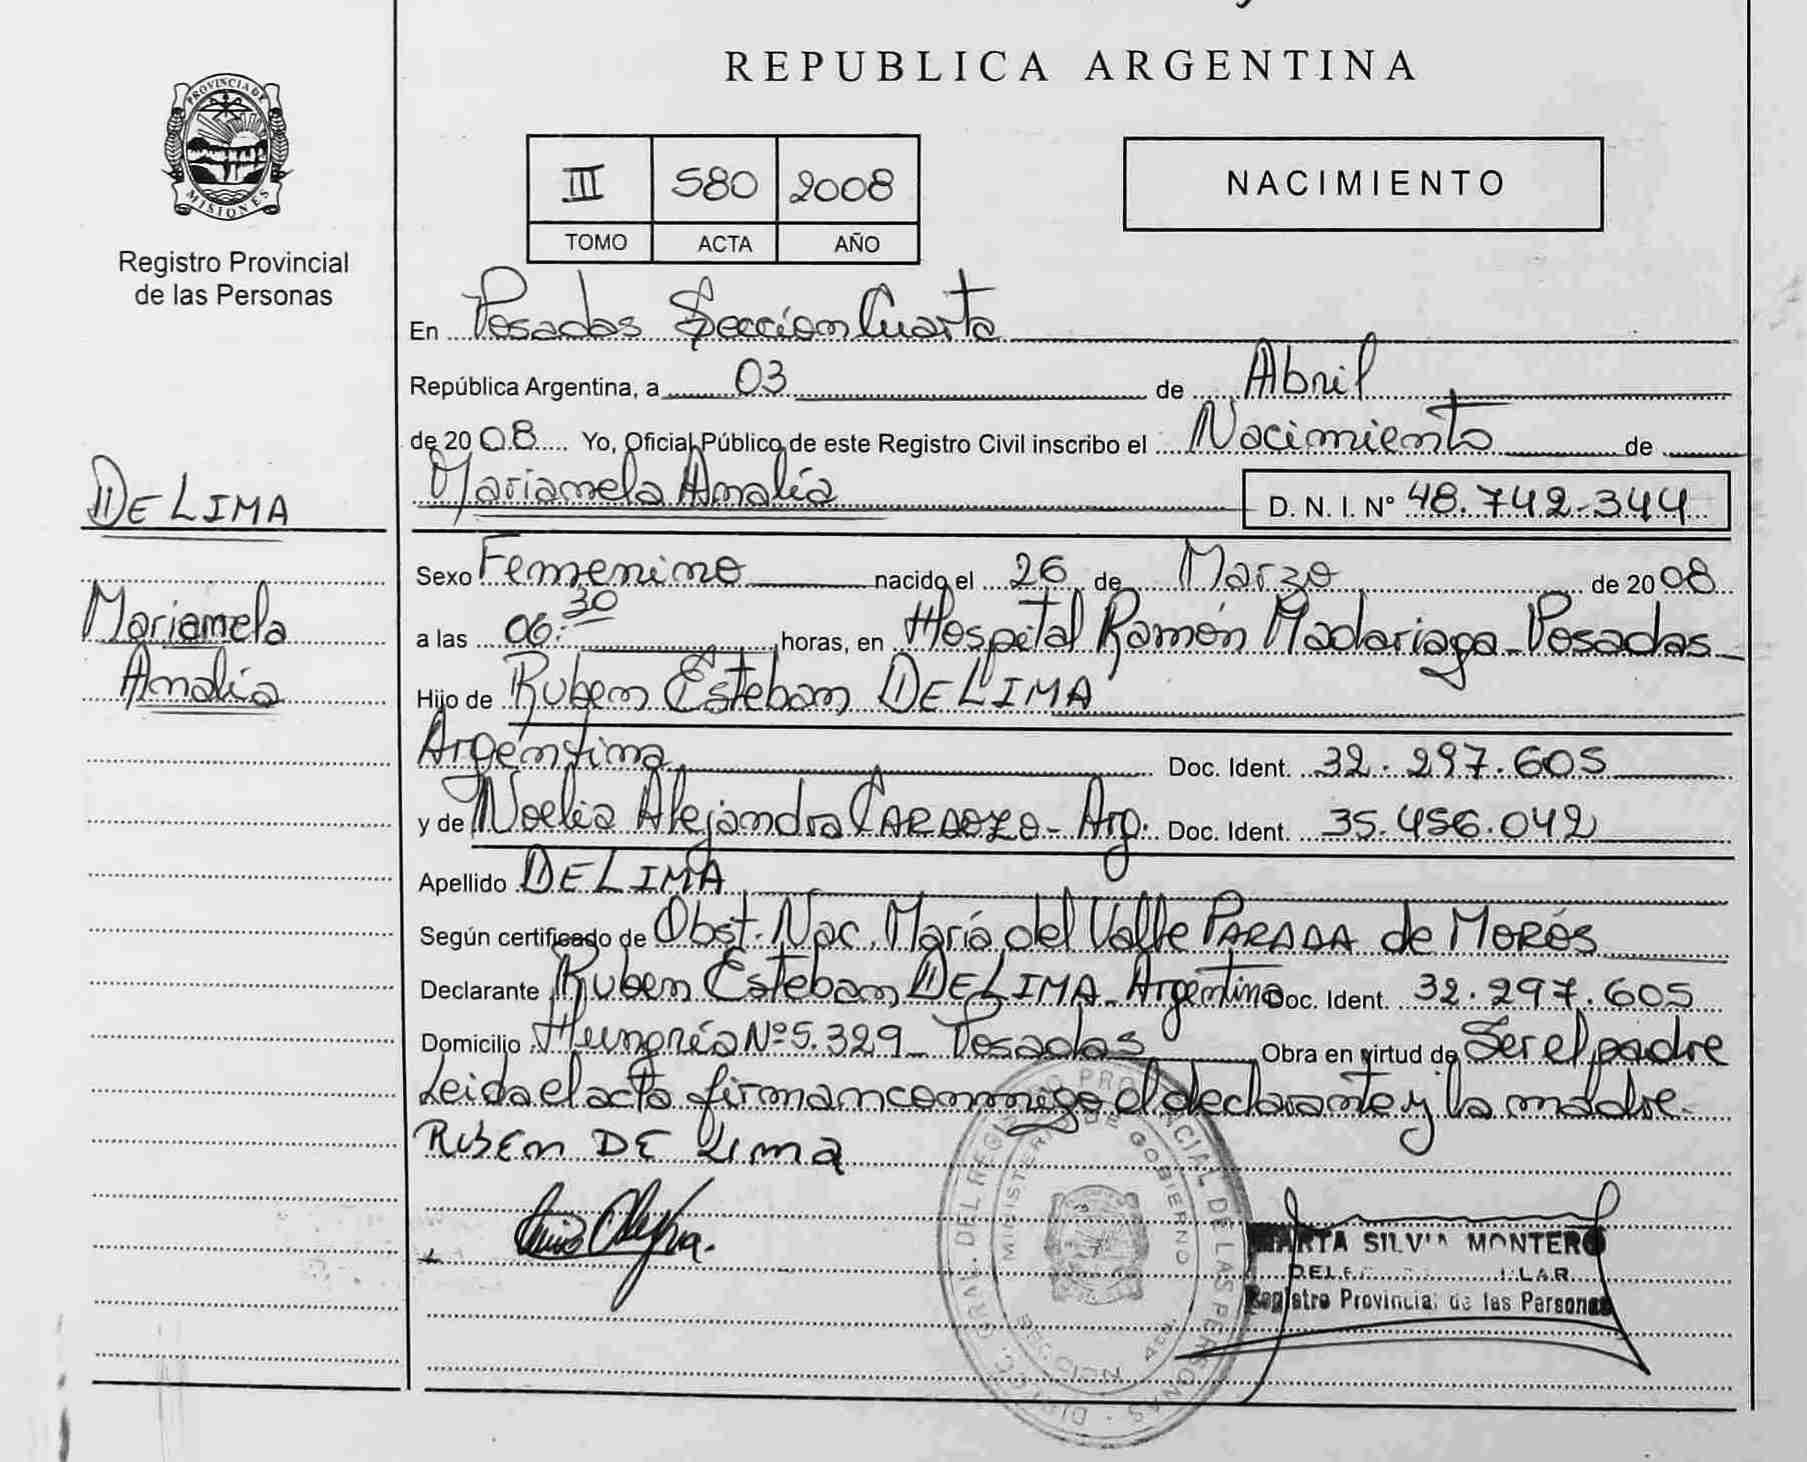 REPUBLICA ARGENTINA
PROVINCIA DE
MISIONES
Registro Provincial
de las Personas
III 580 2008
TOMO ACTA AÑO
NACIMIENTO
En Posadas Sección Cuarta
República Argentina, a 03 de Abril
de 2008 Yo, Oficial Público de este Registro Civil inscribo el Nacimiento de
Mariamela Amalia D. N. I. N° 48.742.344
DE LIMA
Mariamela
Amalia
Sexo Femenino nacido el 26 de Marzo de 2008
a las 06:30 horas, en Hospital Ramón Madariaga - Posadas
Hijo de Ruben Esteban DE LIMA
Argentina Doc. Ident. 32.297.605
y de Noelia Alejandra CARDOZO - Arg. Doc. Ident. 35.456.042
Apellido DE LIMA
Según certificado de Obst. Nac. María del Valle PARADA de MORÓS
Declarante Ruben Esteban DE LIMA - Argentina Doc. Ident. 32.297.605
Domicilio Hungría Nº 5.329 - Posadas Obra en virtud de Ser el padre
Leida el acta firman conmigo el declarante y la madre.
RUBEN DE LIMA
MARTA SILVIA MONTERO
Registro Provincial de las Personas
DEL REGISTRO PROVINCIAL DE LAS PERSONAS
MINISTERIO DE GOBIERNO